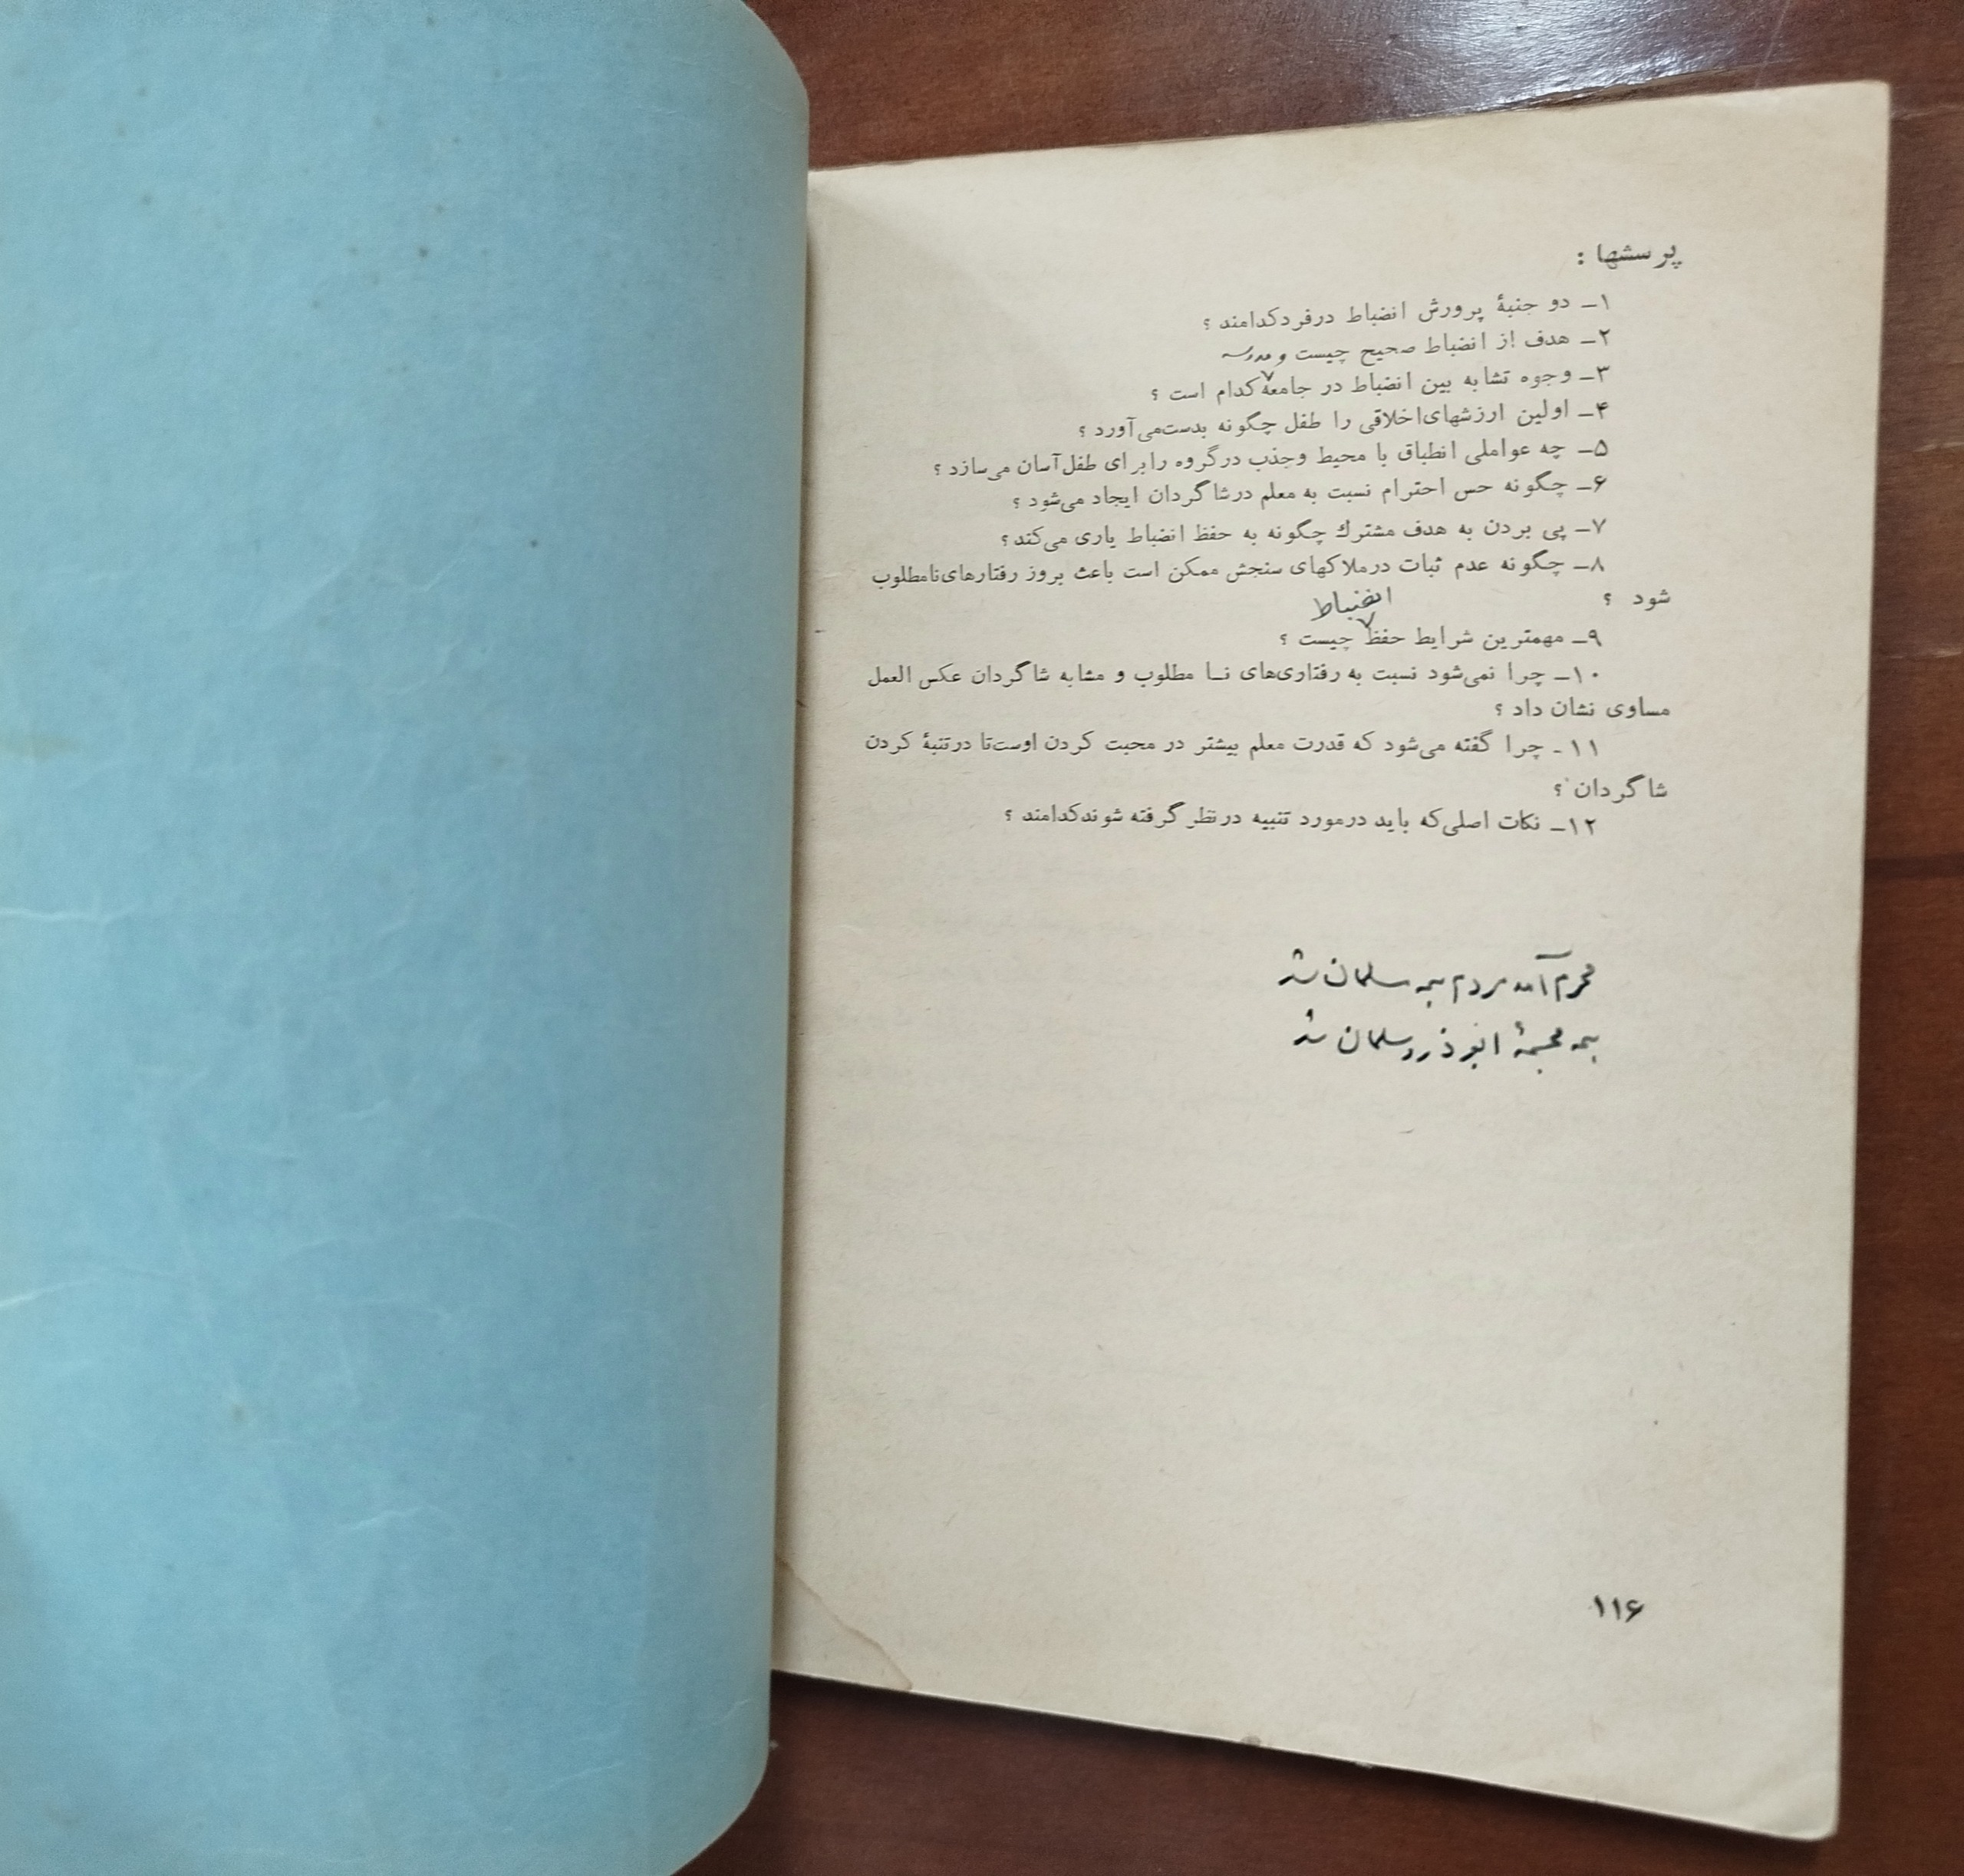 پرسشها :
۱ـ دو جنبهٔ پرورش انضباط درفردکدامند ؟
۲ـ هدف از انضباط صحیح چیست و
مدرسه
۳ـ وجوه تشابه بین انضباط در جامعه کدام است ؟
۴ـ اولین ارزشهای‌اخلاقی را طفل چگونه بدست‌می‌آورد ؟
۵ـ چه عواملی انطباق با محیط وجذب درگروه رابرای طفل‌آسان می‌سازد ؟
۶ـ چگونه حس احترام نسبت به معلم درشاگردان ایجاد می‌شود ؟
۷ـ پی بردن به هدف مشترك چگونه به حفظ انضباط یاری می‌کند ؟
۸ـ چگونه عدم ثبات درملاکهای سنجش ممکن است باعث بروز رفتارهای‌نامطلوب
شود ؟
انضباط
۹ـ مهمترین شرایط حفظ چیست ؟
۱۰ـ چرا نمی‌شود نسبت به رفتاری‌های نـا مطلوب و مشابه شاگردان عکس العمل
مساوی نشان داد ؟
۱۱ـ چرا گفته می‌شود که قدرت معلم بیشتر در محبت کردن اوست‌تا درتنبهٔ کردن
شاگردان ؟
۱۲ـ نکات اصلی‌که باید درمورد تنبیه درنظر گرفته شوندکدامند ؟
محرم آمد مردم همه سلمان شد
همه مجسمهٔ ابوذر و سلمان شد
۱۱۶